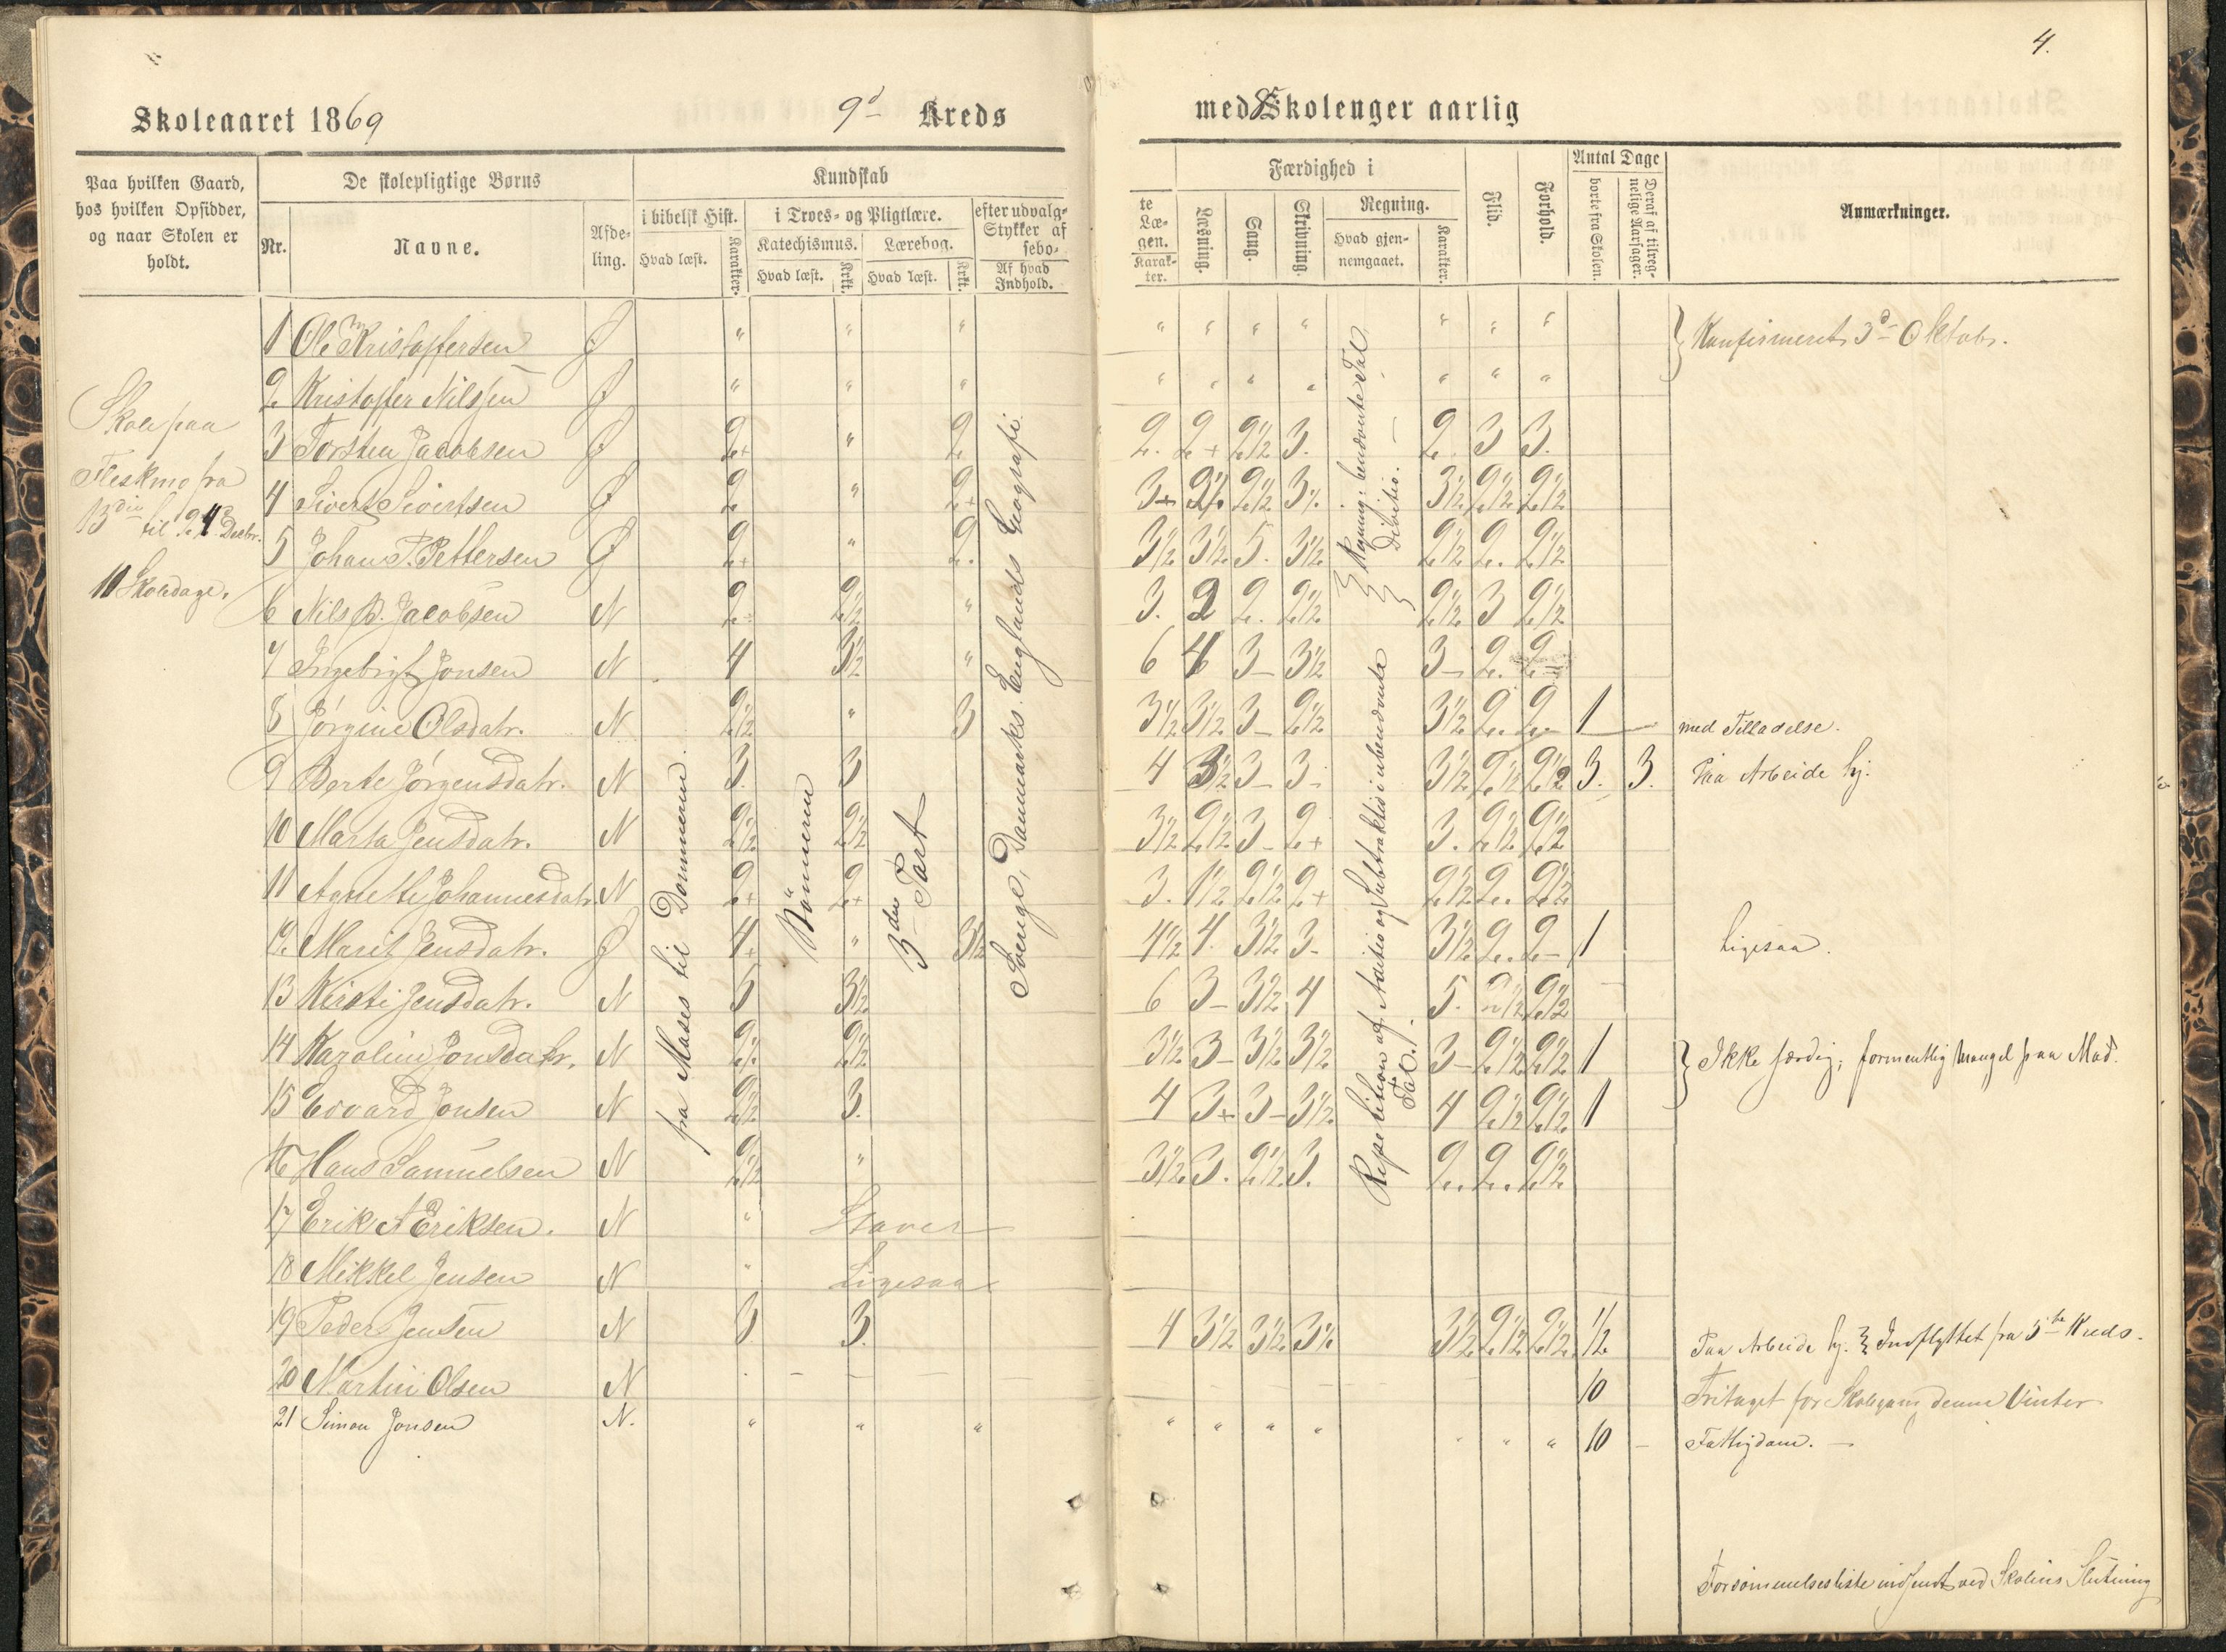 4.
Skoleaaret 1869 9d Kreds med 8 Skolenger aarlig
Paa hvilken Gaard, hos hvilken Opsidder, og naar Skolen er holdt.
De skolepligtige Børns
Nr. Navne. Afdeling.
Kundskab
i bibelsk Hist. Hvad læst. Karakter.
i Troes- og Pligtlære.
Katechismus. Hvad læst. Krkt.
Lærebog. Hvad læst. Krkt.
efter udvalgte
Stykker af Læsebogen.
Af hvad Indhold. Karakter.
Færdighed i
Læsning. Sang. Skrivning.
Regning. Hvad gjennemgaaet. Karakter.
Flid. Forhold.
Antal Dage
borte fra Skolen. Deraf af tilregnelige Aarsager.
Anmærkninger.
Skole paa
Fleskmo fra
13die til 24d Decbr.
11 Skoledage.
fra Moses til Dommerne.
Bönnerne
3den Part
Sverige, Danmarks. Englands Geografi.
Regning i benævnte Tal
Divitio.
Repetition af Aditio og Subtraktio i ubenævnte
Tal.
1 Ole Kristoffersen Ø " " " " " " " " " " } Konfirmeret 3d Oktobr.
2 Kristoffer Nilssen Ø " " " " " " " " " "
3 Torsten Jacobsen Ø 2+ " 2 2. 2+ 2½ 3. 2. 3 3.
4 Sivert Sivertsen Ø 2 " 2+ 3+ 2½ 2½ 3½ 3½ 2½ 2½
5 Johan P. Pettersen Ø 2+ " 2. 3½ 3½ 5. 3½ 2½ 2. 2½
6 Nils P. Jacobsen N 2- 2½ " 3. 2 2. 2½ 2½ 3 2½
7 Ingebrigt Jonsen N 4 3½ " 6 4 3- 3½ 3- 2. 2-
8 Jørgine Olsdatr. N 2½ " 3 3½ 3½ 3- 2½ 3½ 2. 2. 1 — med Tilladelse.
9 Berte Jørgensdatr. N 3. 3 4 3½ 3- 3- 3½ 2½ 2½ 3. 3. Paa Arbeide hj.
10 Marta Jensdatr. N 2½ 2½ 3½ 2½ 3- 2+ 3. 2½ 2½
11 Agnette Johannesdatr N 2+ 2+ 3. 1½ 2½ 2+ 2½ 2. 2½
12. Marit Jensdatr. Ø 4+ " 3½ 4½ 4. 3½ 3- 3½ 2. 2- 1 Ligesaa.
13 Kirsti Jensdatr. N 5 3½ 6 3- 3½ 4 5. 2½ 2½ -
14 Karoline Jonsdatr. N 2½ 2½ 3½ 3- 3½ 3½ 3- 2½ 2½ 1 } Ikke færdig; formentlig Mangel paa Mad.
15 Edvard Jonsen N 2½ 3. 4 3+ 3- 3½ 4 2½ 2½ 1
16 Hans Samuelsen N 2½ " 3½ 3. 2½ 3. 2. 2. 2½
17 Erik A Eriksen. N " Staver
18 Mikkel Jensen N " Ligesaa
19 Peder Jensen N 3 3. 4 3½ 3½ 3½ 3½ 2½ 2½ ½ Paa Arbeide hj. } Indflyttet fra 5te Kreds.
20 Martin Olsen N - - - 10 Fritaget for Skolegang denne Vinter
21 Simon Jonsen N. " " " " " " " " " " 10 - Fattigdom. —
Forsömmelsesliste indsendt ved Skolens Slutning